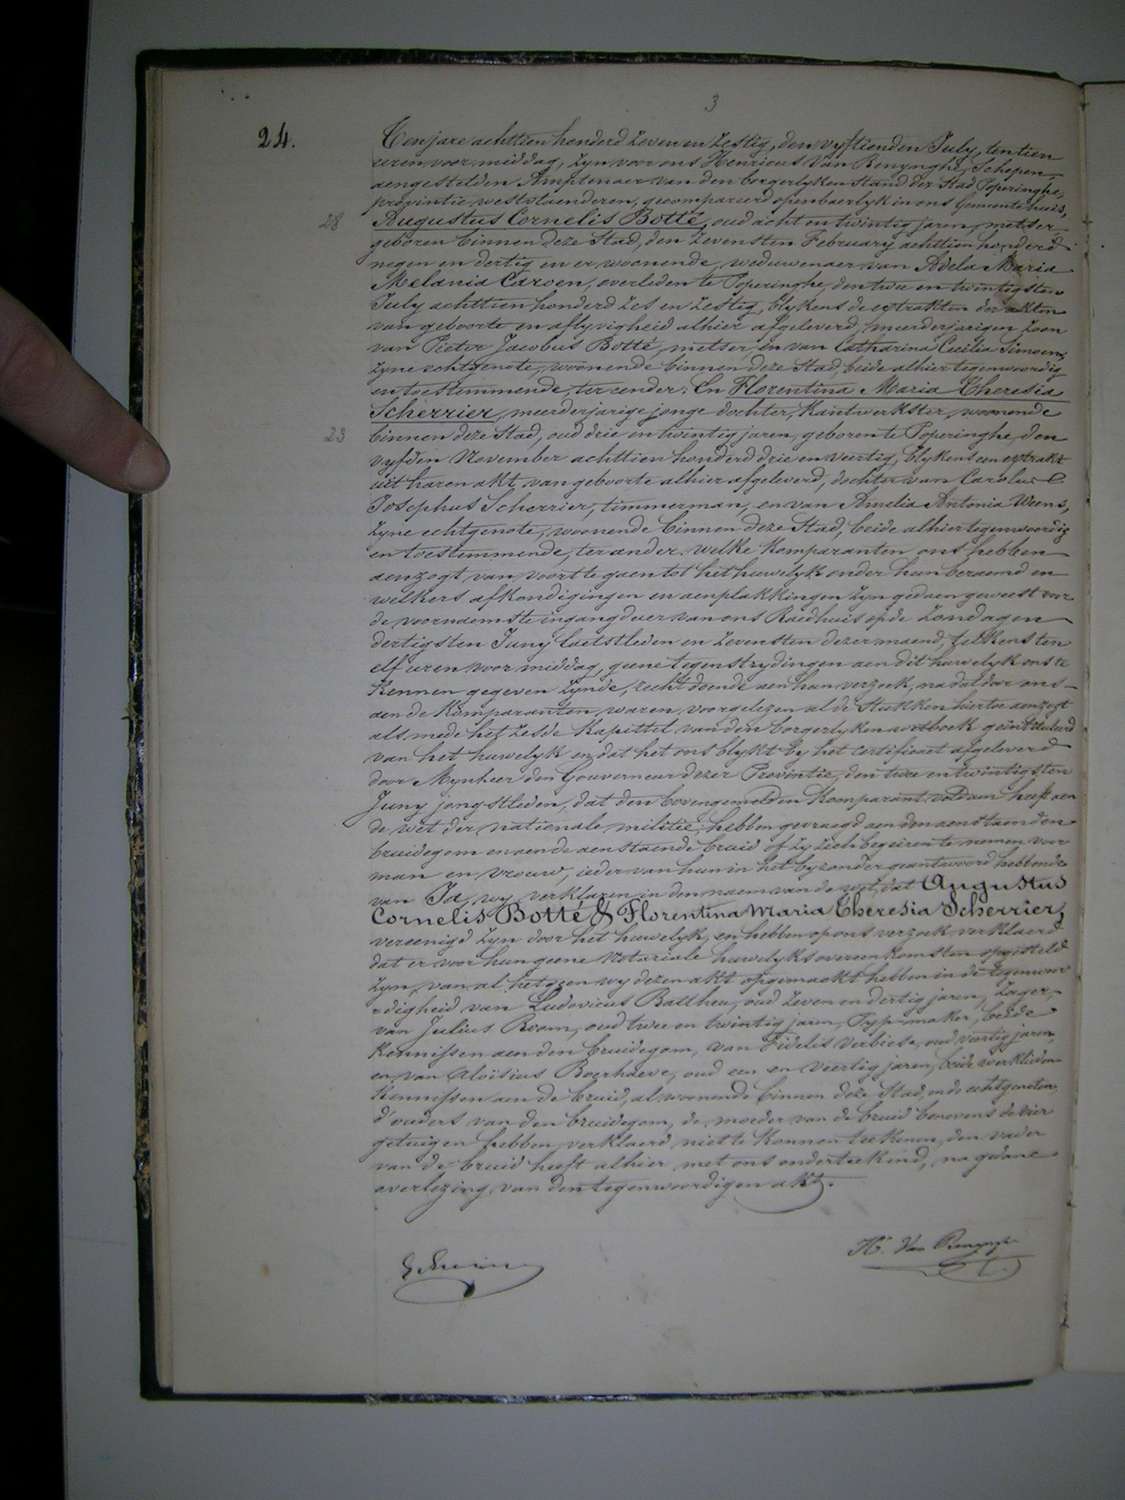 3
24.
Ten jare achttien honderd zeven en zestig, den vyftienden July, ten tien
uren voor middag, zyn voor ons Henricus Van Renynghe, Schepen,
aengestelden Amptenaer van den borgerlyken stand der Stad Poperinghe,
provintie westvlaenderen, gecompareerd openbaerlyk in ons Gemeentehuis,
28 Augustus Cornelis Botté, oud acht en twintig jaren, metser
geboren binnen deze Stad, den zevensten February achttien honderd
negen en dertig en er woonende, weduwenaer van Adela Maria
Melania Caroen, overleden te Poperinghe, den twee en twintigsten
July achttien honderd zes en zestig, blykens de extrakten der akten
van geboorte en aflyvigheid alhier afgeleverd, meerderjarigen zoon
van Pieter Jacobus Botté, metser en van Catharina Cecilia Simoen,
zyne echtgenote, woonende binnen deze Stad, beide alhier tegenwoordig
en toestemmende, ter eender; En Florentina Maria Theresia
Scherrier, meerderjarige jonge dochter, Kantwerkster, woonende
23 binnen deze Stad, oud drie en twintig jaren, geboren te Poperinghe, den
vyfden November achttien honderd drie en veertig, blykens een extrakt
uit haren akt van geboorte alhier afgeleverd, dochter van Carolus
Josephus Scherrier, timmerman, en van Amelia Antonia Weens,
zyne echtgenote, woonende binnen deze Stad, beide alhier tegenwoordig
en toestemmende, ter ander. Welke Komparanten ons hebben
aenzogt van voort te gaen tot het huwelyk onder hun beraemd en
welkers afkondigingen en aenplakkingen zyn gedaen geweest voor
de voornaemste ingangdeur van ons Raedhuis op de zondagen
dertigsten Juny laetstleden en zevensten dezer maend, telkens ten
elf uren voor middag, geene tegenstrydingen aen dit huwelyk ons te
kennen gegeven zynde, recht doende aen hun verzoek, na dat door ons
aen de Komparanten waren voorgelezen al de Stukken hiertoe aenzogt
als mede het zesde Kapittel van den borgerlyken wetboek geintituleerd
van het huwelyk en dat het ons blykt by het certificaet afgeleverd
door Mynheer den Gouverneur dezer Provintie, den twee en twintigsten
Juny jongstleden, dat den bovengemelden Komparant voldaen heeft aen
de wet der nationale militie, hebben gevraegd aen den aenstaenden
bruidegom en aen de aenstaende bruid of zy zich begeiren te nemen voor
man en vrouw, ieder van hun in het byzonder geantwoord hebbende
van Ja, wy verklaren in den naem van de wet, dat Augustus
Cornelis Botté & Florentina Maria Theresia Scherrier,
vereenigd zyn door het huwelyk, en hebben op ons verzoek verklaerd
dat er voor hun geene notariale huwelyks overeenkomsten opgesteld
zyn, van al hetgen wy dezen akt opgemaekt hebben in de tegenwoor
digheid van Ludovicus Battheu, oud zeven en dertig jaren, zager,
van Julius Room, oud twee en twintig jaren, beide
Kennissen aen den bruidegom, van Fidelis Verbiese, oud veertig jaren,
en van Aloïsius Beerhaeve, oud een en veertig jaren, beide werklieden
Kennissen aen de bruid, al woonende binnen deze Stad, en de echtgenoten,
d'ouders van den bruidegom, de moeder van de bruid benevens de vier
getuigen hebben verklaerd niet te konnen teekenen, den vader
van de bruid heeft alhier met ons onderteekend, na gedane
overlezing van den tegenwoordigen akt.
H. Van Renynghe